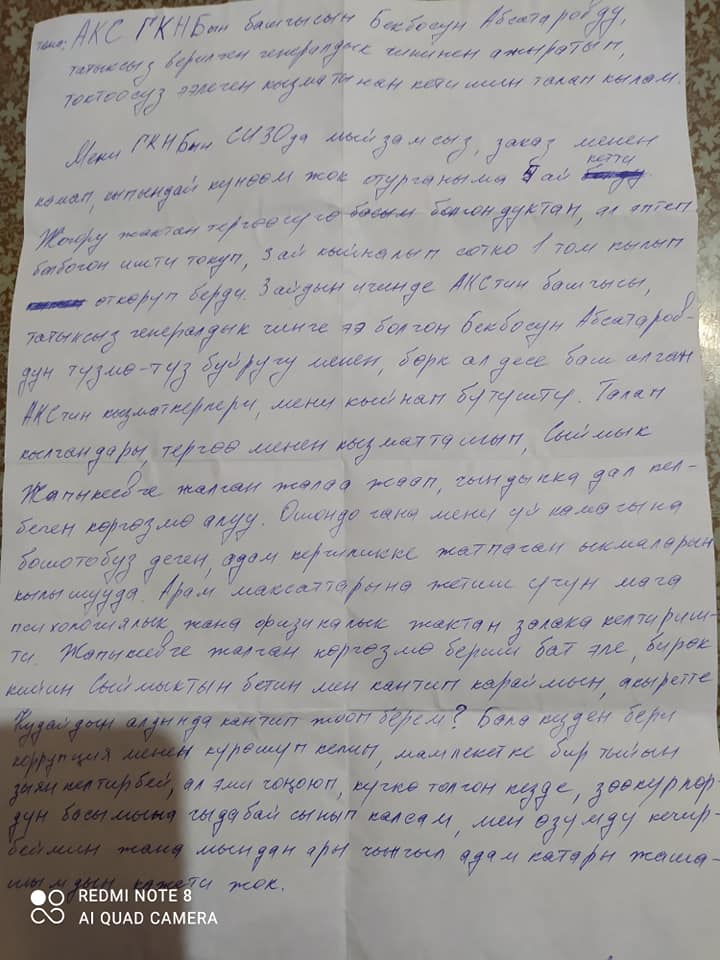 тема: АКС ГКНБын башчысын Бекбосун Абсатаровду,
татыксыз берилген генералдык чининен ажыратып,
токтоосуз ээлеген кызматынан кетишин талап кылам.
Мени ГКНБын СИЗОда мыйзамсыз, заказ менен
камап, кыпындай күнөөм жок отурганыма 5 ай кетти
Жогору жактан тергөөчүгө басым болгондуктан, ал эптеп
болбогон ишти токуп, 3 ай кыйналып сотко 1 том кылып
откоруп берди. 3 айдын ичинде АКСтин башчысы,
татыксыз генералдык чинге ээ болгон Бекбосун Абсатаров-
дун тузмо-туз буйругу менен, борк ал десе баш алган
АКСтин кызматкерлери, мени кыйнап бутушту. Талап
кылгандары, тергоо менен кызматташып, Сыймык
Жапыкеевге жалган жалаа жаап, чындыкка дал кел-
беген коргозмо алуу. Ошондо гана мени уй камагына
бошотобуз деген, адам керчиликке жатпаган ыкмаларын
кылышууда. Арам максаттарына жетиш учун мага
психологиялык жана физикалык жактан залака келтириш-
ти. Жапыкеевге жалган коргозмо бериш бат эле, бирок
кийин Сыймыктын бетин мен кантип караймын, акыретте
Кудайдын алдында кантип жооп берем? Бала кезден бери
коррупция менен курошуп келип, мамлекетке бир тыйын
зыян келтирбей, ал эми чоңоюп, кучко толгон кезде, зоокурлор-
дун басымына чыдабай сынып калсам, мен озумду кечир-
беймин жана мындан ары чынчыл адам катары жаша-
шымдын кажети жок.
REDMI NOTE 8
AI QUAD CAMERA